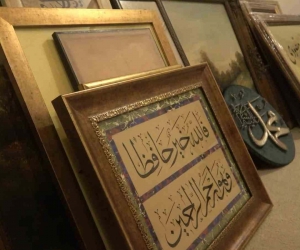 فالله خير حافظا
وهو ارحم الراحمين
محمد